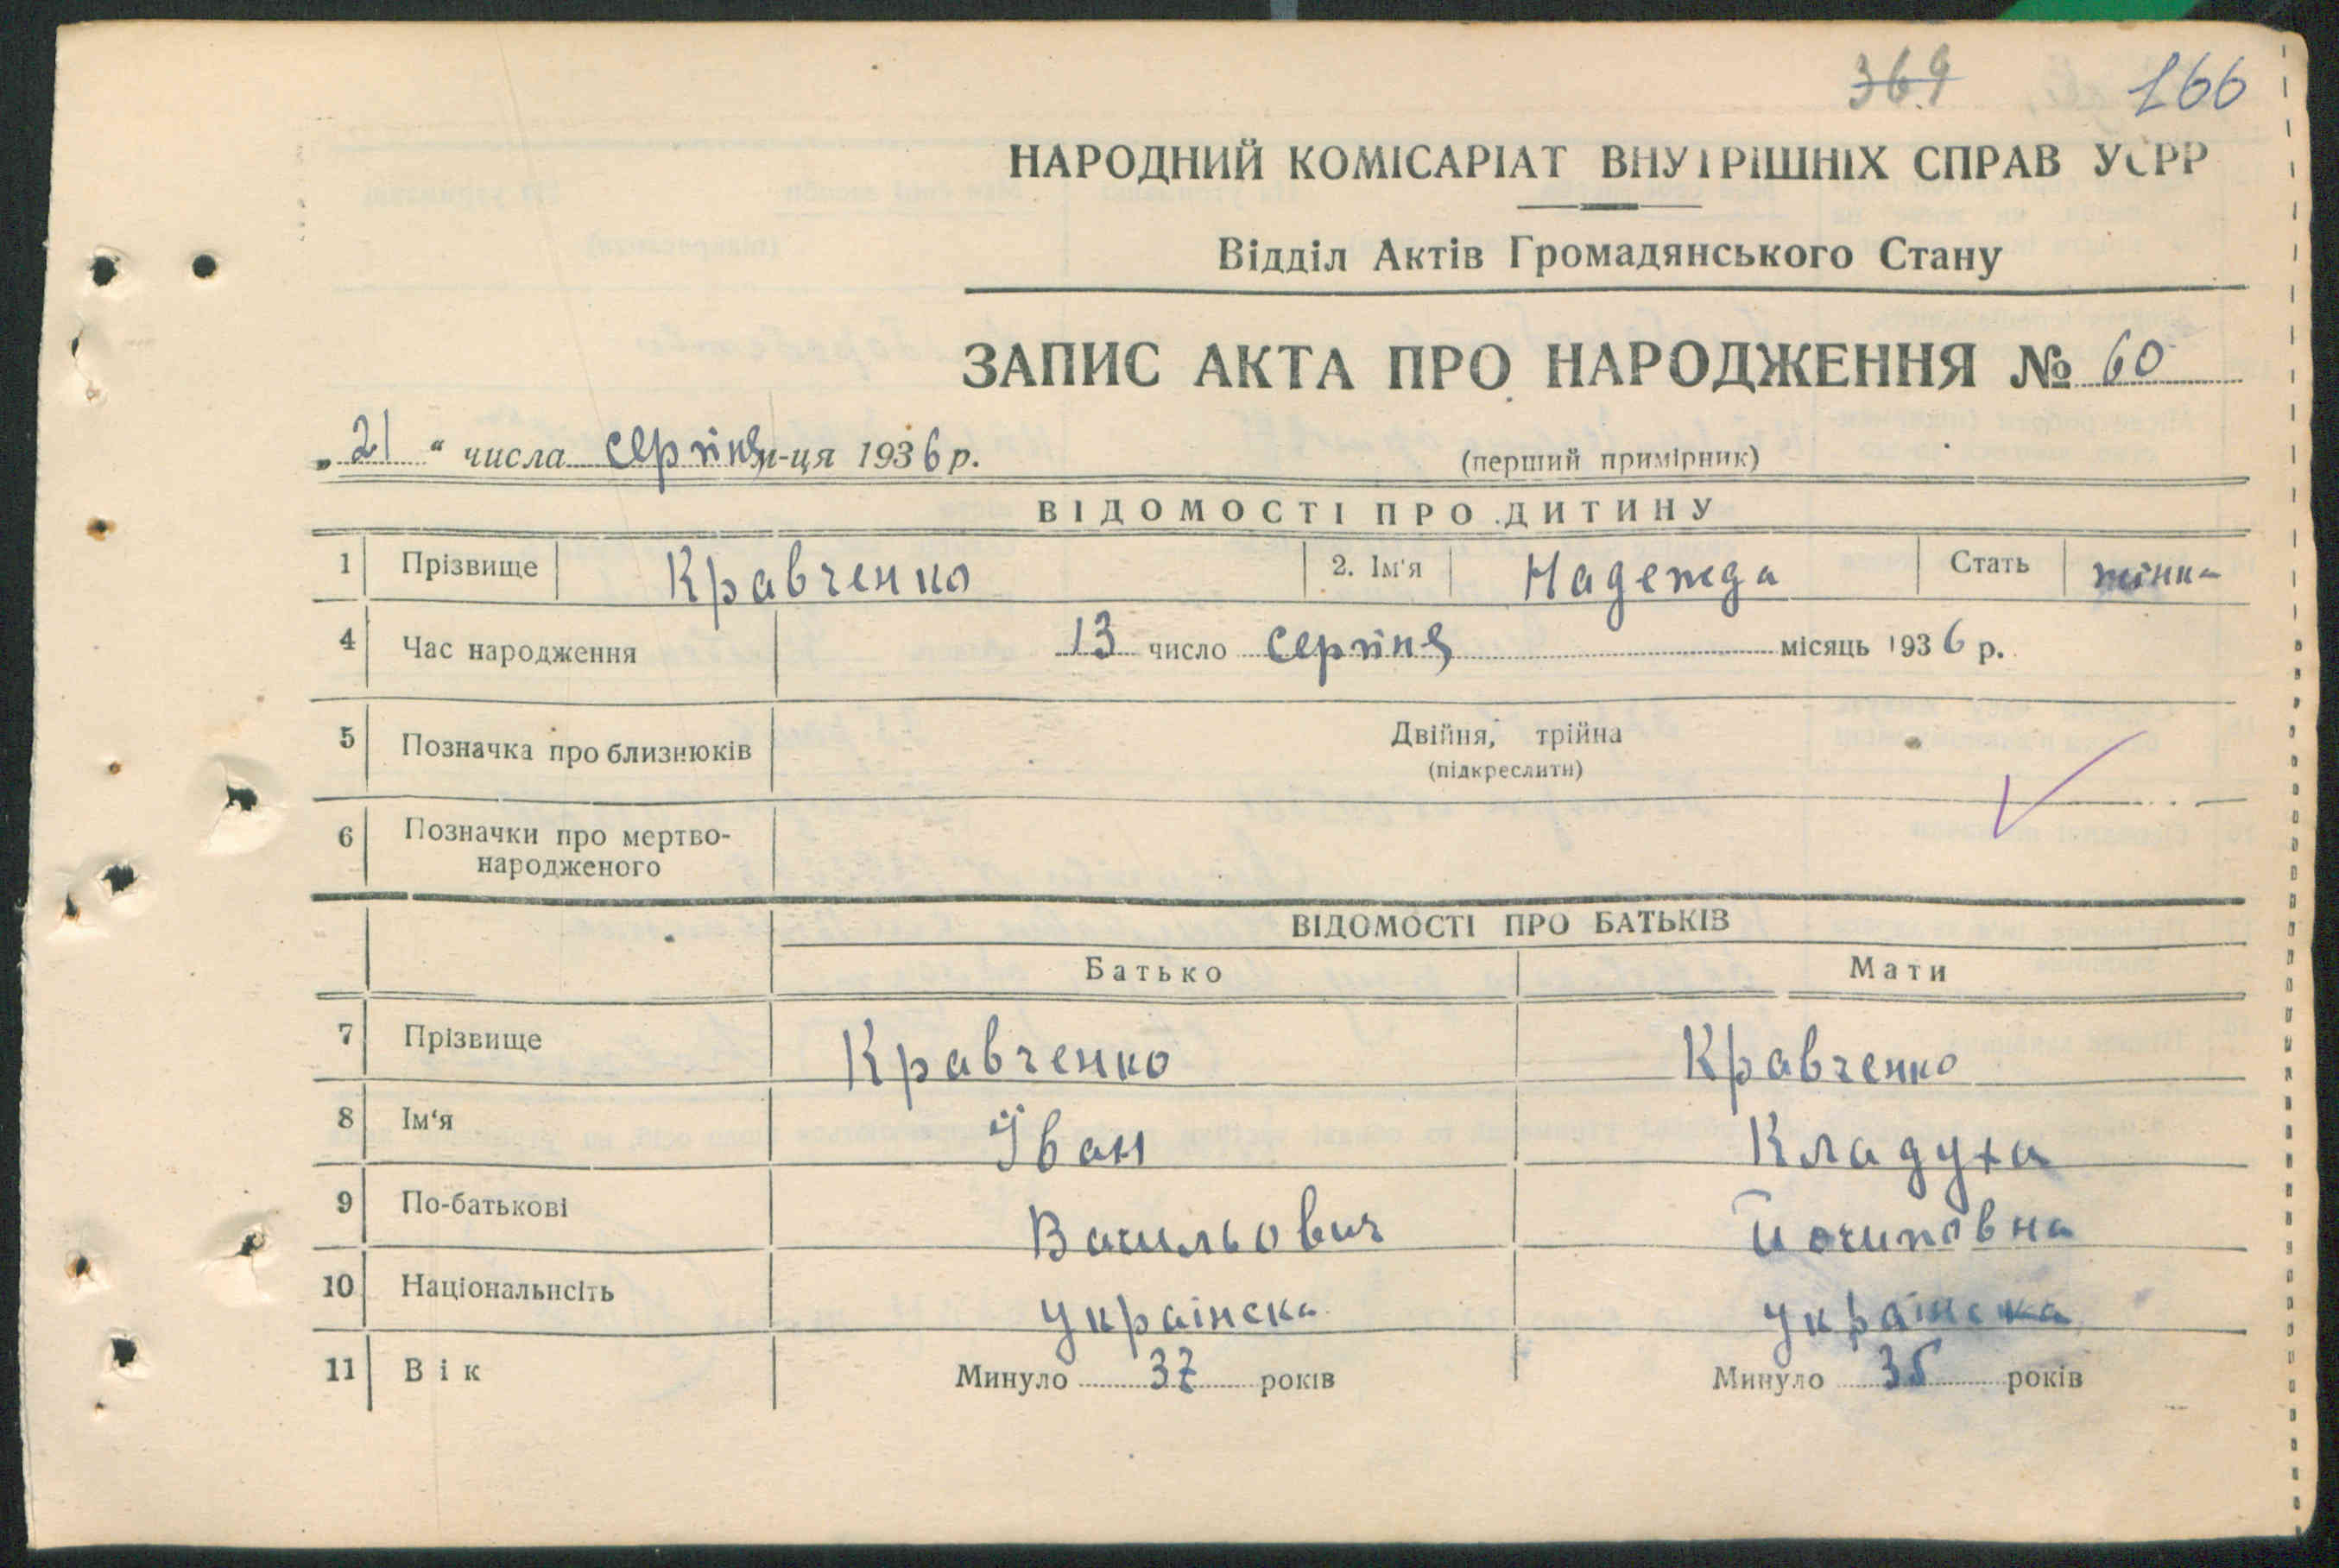 369 166
НАРОДНИЙ КОМІСАРІАТ ВНУТРІШНІХ СПРАВ УСРР
Відділ Актів Громадянського Стану
ЗАПИС АКТА ПРО НАРОДЖЕННЯ № 60
„21“ числа серпня м-ця 1936 р. (перший примірник)
ВІДОМОСТІ ПРО ДИТИНУ
1 Прізвище Кравченко 2. Ім'я Надежда Стать жінка
4 Час народження 13 число серпня місяць 1936 р.
5 Позначка про близнюків Двійня, трійна
(підкреслити)
6 Позначки про мертво-
народженого
ВІДОМОСТІ ПРО БАТЬКІВ
Батько Мати
7 Прізвище Кравченко Кравченко
8 Ім‘я Іван Кладуха
9 По-батькові Васильович
10 Національнсіть українска українска
11 Вік Минуло 37 років Минуло 35 років